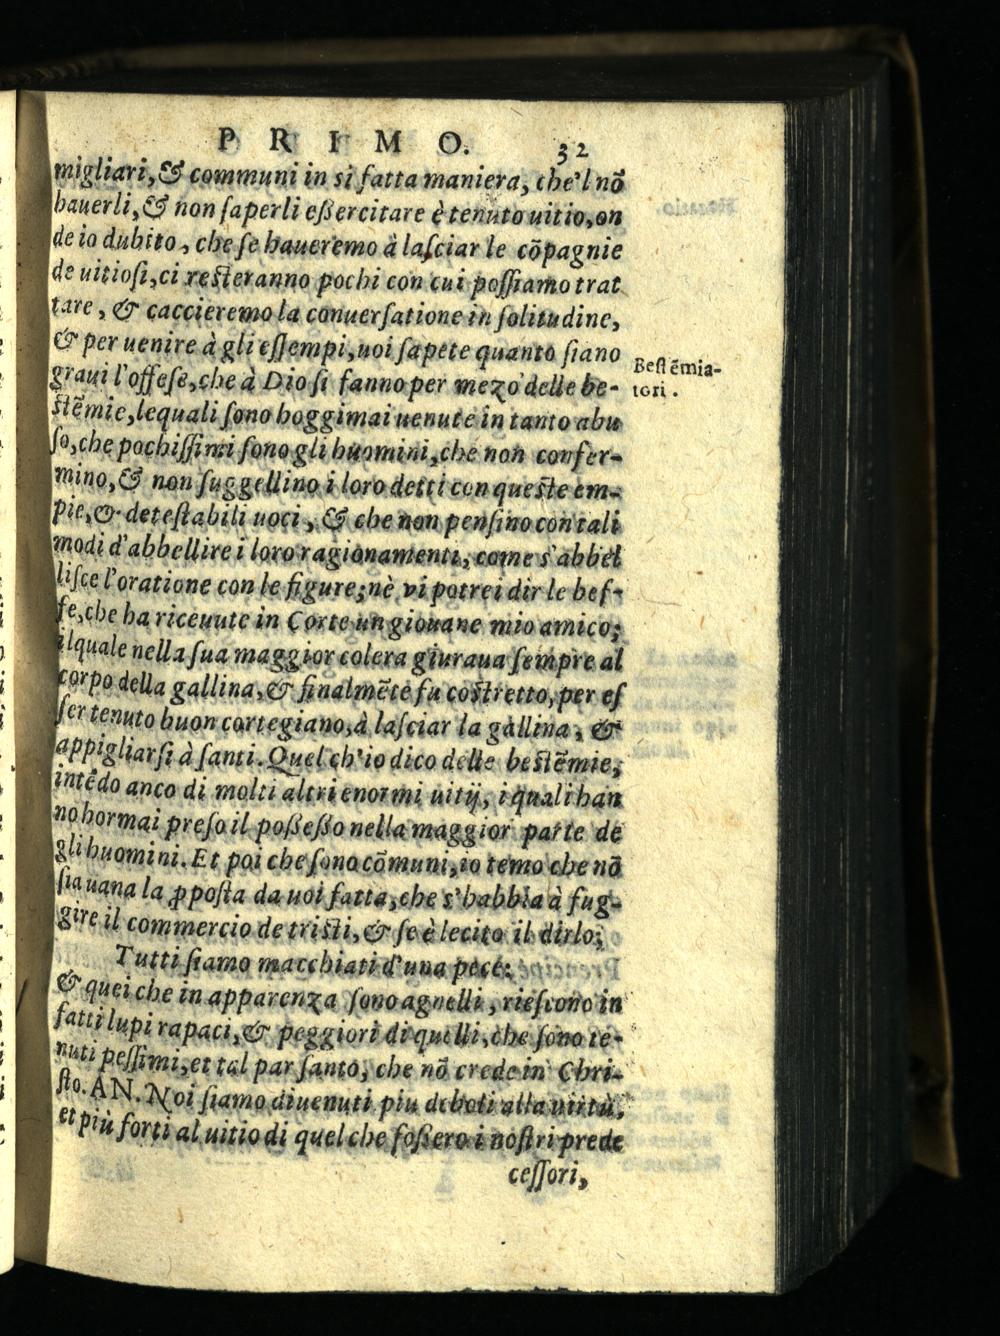 PRIMO. 32
migliari, & communi in si fatta maniera, che'l nō
hauerli, & non ſaperli eßercitare è tenuto uitio, on
de io dubito, che ſe haueremo à laſciar le cōpagnie
de uitioſi, ci reſteranno pochi con cui poſſiamo trat
tare, & caccieremo la conuerſatione in ſolitudine,
& per uenire à gli eſſempi, uoi ſapete quanto ſiano
Beſtēmia-
graui l'offeſe, che à Dio ſi fanno per mezo delle be-
tori.
ſtēmie, lequali ſono hoggimai uenute in tanto abu
ſo, che pochiſſimi ſono gli huomini, che non confer-
mino, & non ſuggellino i loro detti con queſte em-
pie, & deteſtabili uoci, & che non penſino con tali
modi d'abbellire i loro ragionamenti, come s'abbel
liſce l'oratione con le figure; nè vi potrei dir le bef-
fe, che ha riceuute in Corte un giouane mio amico;
ilquale nella ſua maggior colera giuraua ſempre al
corpo della gallina, & finalmēte fu coſtretto, per eſ
ſer tenuto buon cortegiano, à laſciar la gallina, &
appigliarſi à ſanti. Quel ch'io dico delle beſtēmie,
intēdo anco di molti altri enormi uitij, i quali han
no hormai preſo il poßeßo nella maggior parte de
gli huomini. Et poi che ſono cōmuni, io temo che nō
ſia uana la ꝓpoſta da uoi fatta, che s'habbia à fug-
gire il commercio de triſti, & ſe è lecito il dirlo;
Tutti ſiamo macchiati d'una pece:
& quei che in apparenza ſono agnelli, rieſcono in
fatti lupi rapaci, & peggiori di quelli, che ſono te-
nuti peſſimi, et tal par ſanto, che nō crede in Chri-
ſto. AN. Noi ſiamo diuenuti piu deboli alla uirtù,
et più forti al uitio di quel che foßero i noſtri prede
ceſſori,